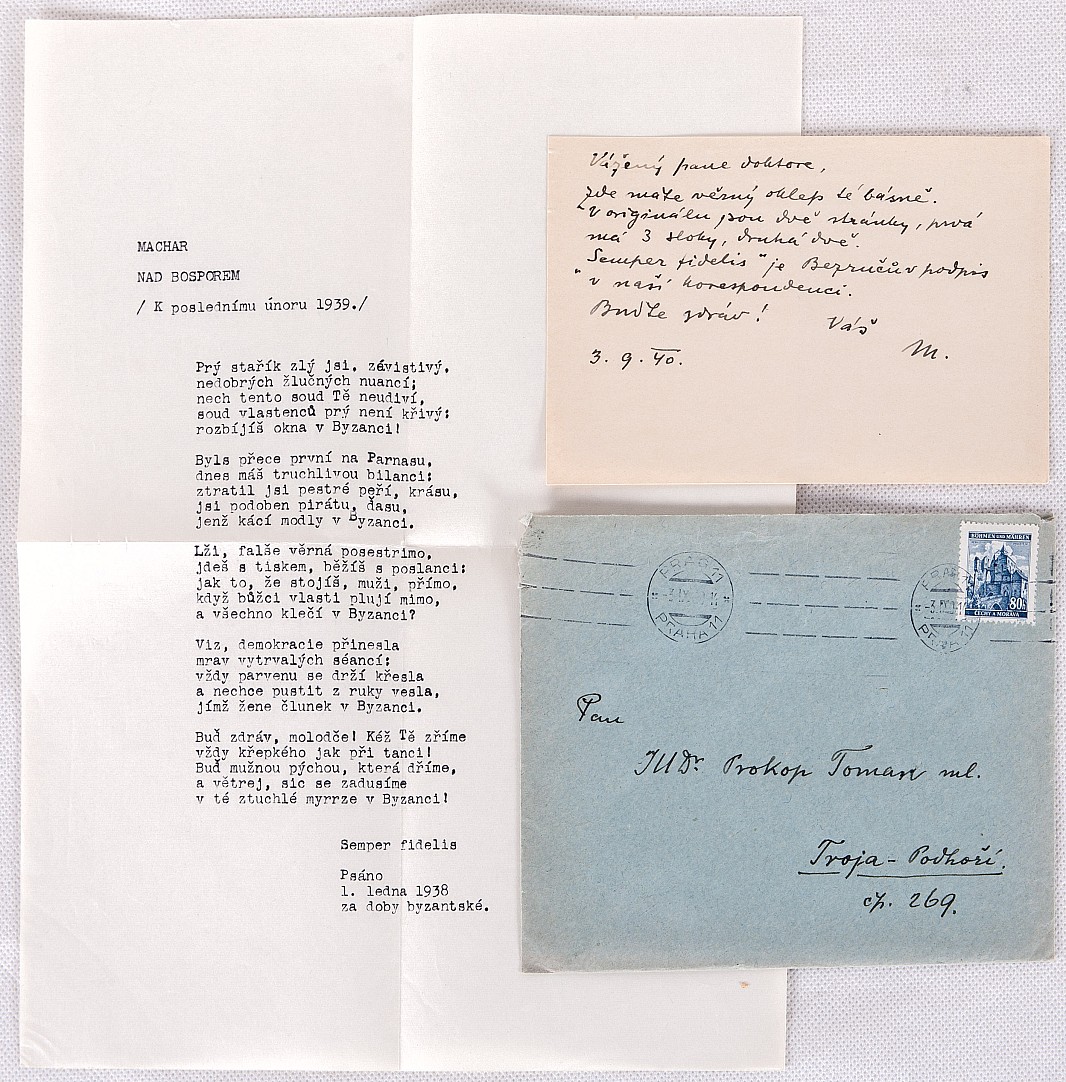 MACHAR
NAD BOSPOREM
/ K poslednímu únoru 1939./
Prý stařík zlý jsi, závistivý,
nedobrých žlučných nuancí;
nech tento soud Tě neudiví,
soud vlastenců prý není křivý:
rozbíjíš okna v Byzanci!
Byls přece první na Parnasu,
dnes máš truchlivou bilanci:
ztratil jsi pestré peří, krásu,
jsi podoben pirátu, ďasu,
jenž kácí modly v Byzanci.
Lži, falše věrná posestrimo,
jdeš s tiskem, běžíš s poslanci:
jak to, že stojíš, muži, přímo,
když bůžci vlasti plují mimo,
a všechno klečí v Byzanci?
Viz, demokracie přinesla
mrav vytrvalých séancí:
vždy parvenu se drží křesla
a nechce pustit z ruky vesla,
jímž žene člunek v Byzanci.
Buď zdráv, molodče! Kéž Tě zříme
vždy křepkého jak při tanci!
Buď mužnou pýchou, která dříme,
a větrej, sic se zadusíme
v té ztuchlé myrrze v Byzanci!
Semper fidelis
Psáno
1. ledna 1938
za doby byzantské.
Vážený pane doktore,
zde máte věrný oklep té básně.
V originálu jsou dvě stránky, prvá
má 3 sloky, druhá dvě.
"Semper fidelis" je Bezručův podpis
v naší korespondenci.
Buďte zdráv!
Váš
M.
3. 9. 40.
BÖHMEN UND MÄHREN
80h
ČECHY A MORAVA
PRAG 11
PRAHA 11
PRAG 11
PRAHA 11
Pan
JUDr Prokop Toman ml.
Troja - Podhoří.
čp. 269.